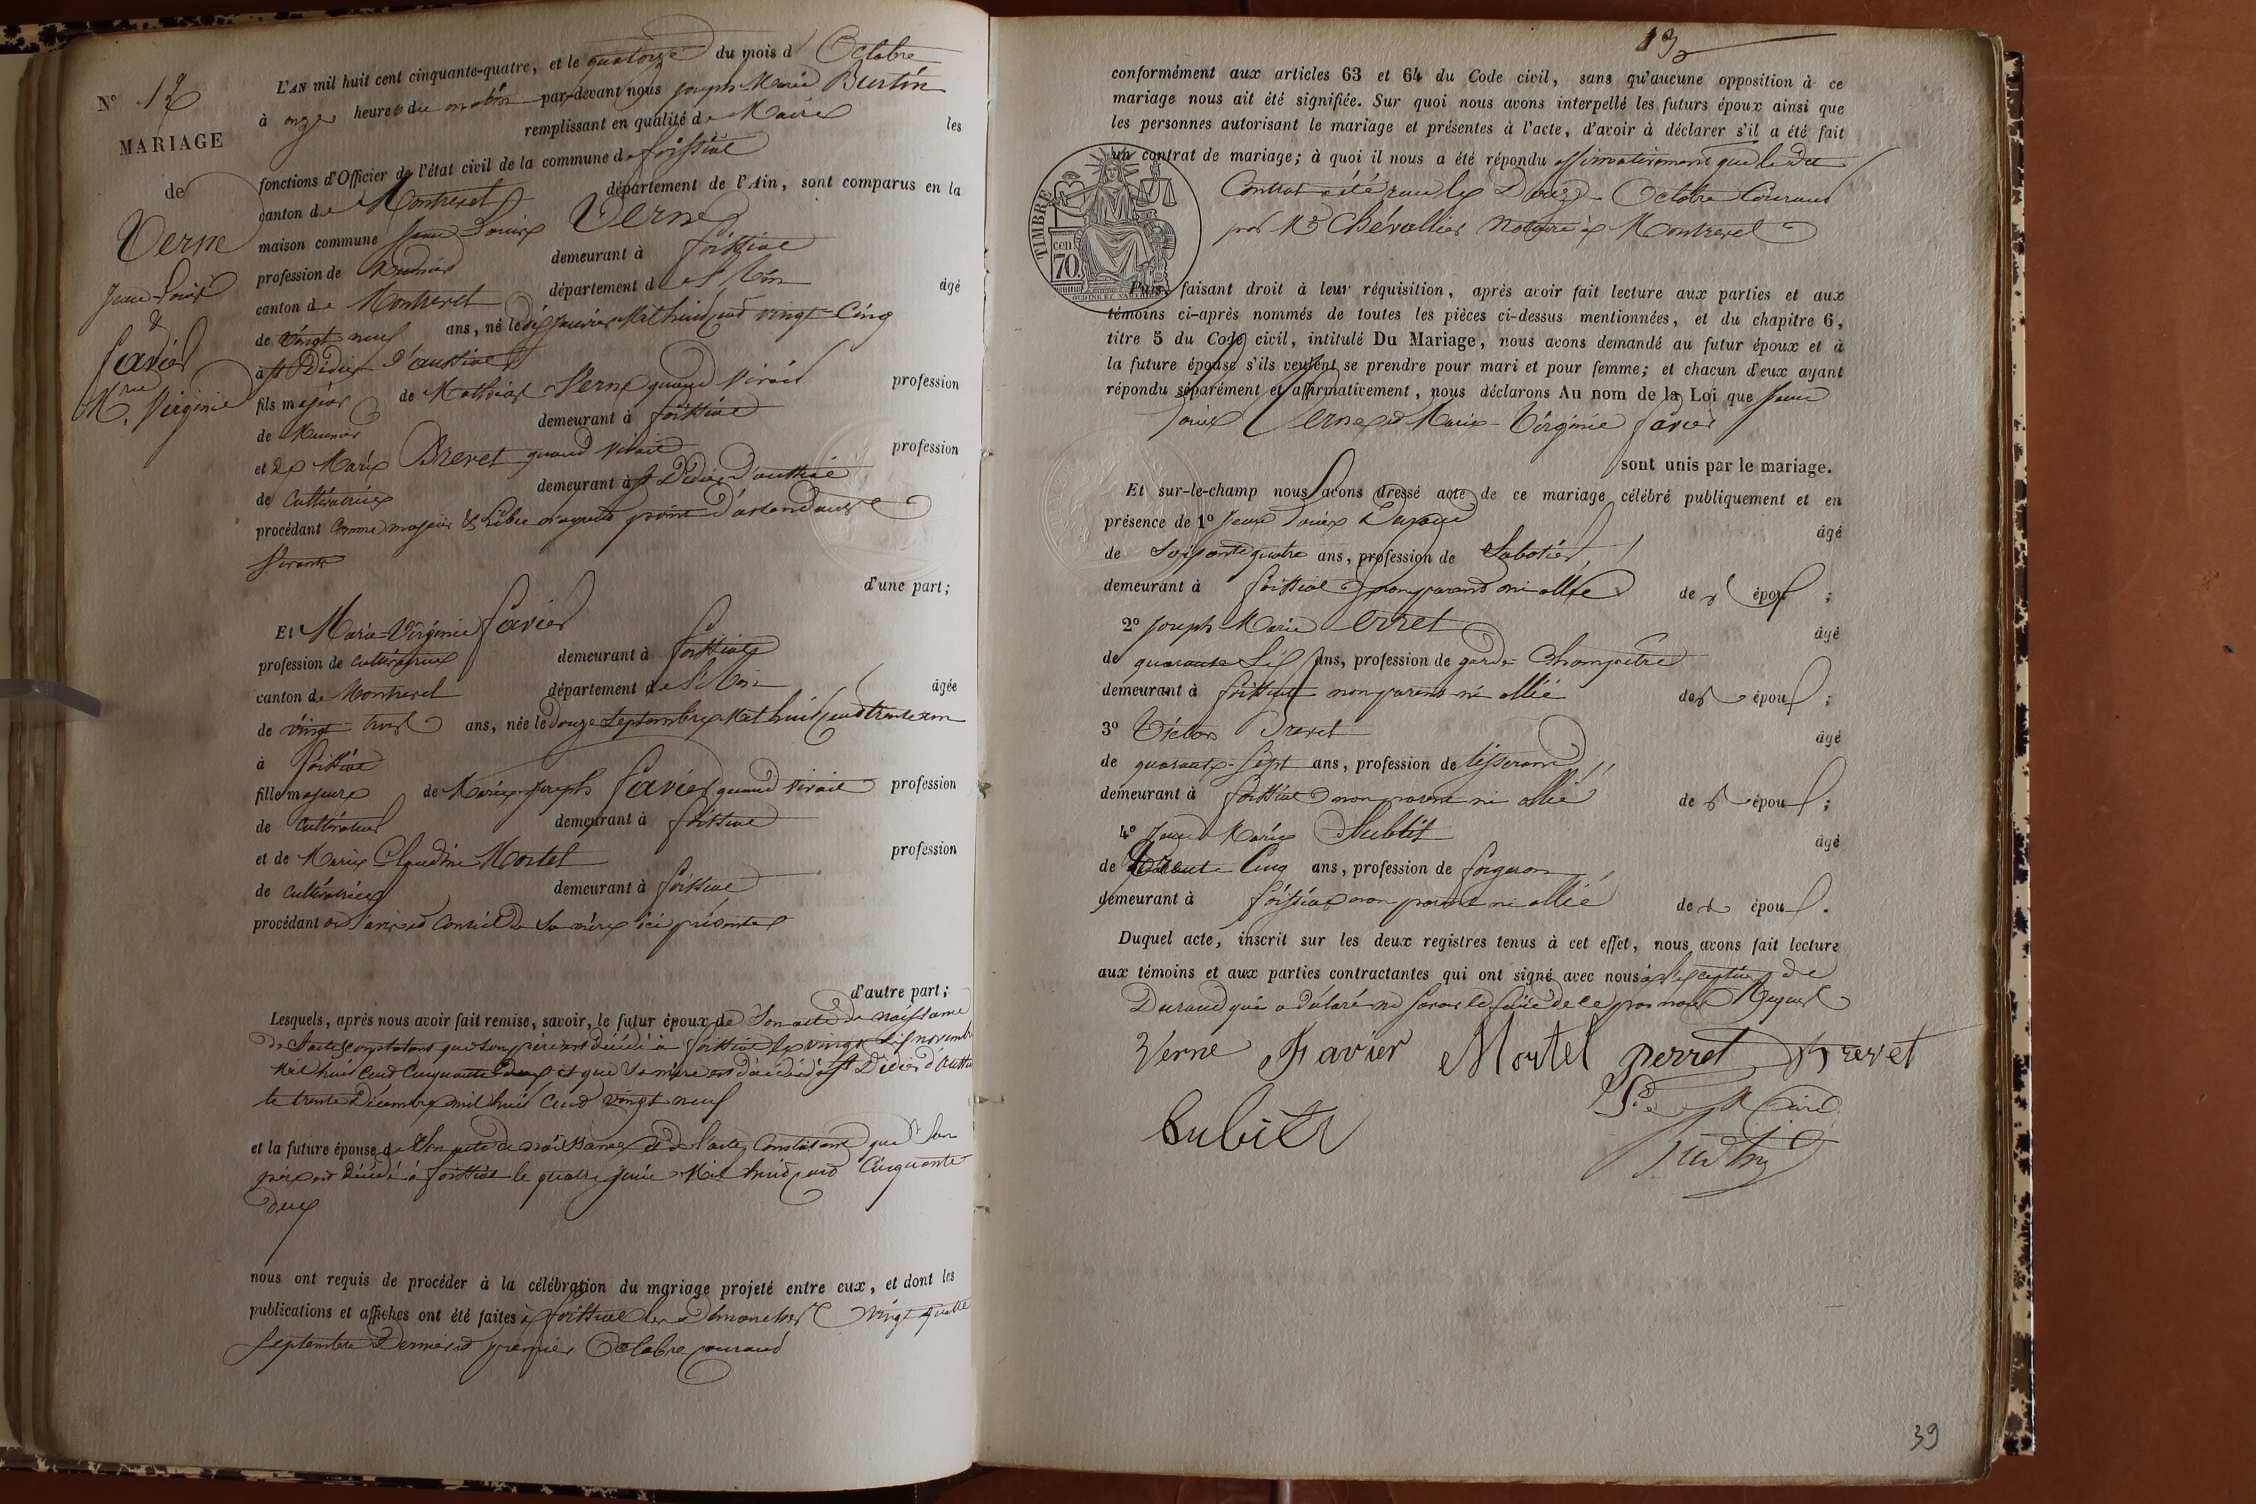 N° 12
MARIAGE
de
Verne
Jean-Louis
&
Favier
Mrie Virginie
L'AN mil huit cent cinquante-quatre, et le quatorze du mois d'Octobre
à onze heures du matin par-devant nous Joseph Marie Burtin
remplissant en qualité de Maire les
fonctions d'Officier de l'état civil de la commune de Foissiat
canton de Montrevel département de l'Ain, sont comparus en la
maison commune Jean Louis Verne
profession de Meunier demeurant à Foissiat
canton de Montrevel département de l'Ain âgé
de vingt neuf ans, né le dix Janvier Mil huit cent vingt Cinq
à St Didier d'aussiat
fils majeur de Mathias Verne quand vivait profession
de Meunier demeurant à foissiat
et de Marie Brevet quand vivait profession
de Cultivatrice demeurant à St Didier d'aussiat
procédant Comme majeur & libre n'ayant point d'ascendants
vivants
d'une part;
Et Marie-Virginie Favier
profession de cultivatrice demeurant à foissiat
canton de Montrevel département de l'Ain âgée
de vingt trois ans, née le douze Septembre Mil huit cent trente un
à foissiat
fille majeure de Marie Joseph Favier quand vivait profession
de Cultivateur demeurant à foissiat
et de Marie Claudine Mortel profession
de cultivatrice demeurant à foissiat
procédant de l'avis et Conseil de Sa mère ici présente
d'autre part;
Lesquels, après nous avoir fait remise, savoir, le futur époux de Son acte de naissance
de l'acte constatant que son père est décédé à foissiat le vingt six novembre
Mil huit Cent Cinquante deux et que Sa mère est décédée à St Didier d'Aussiat
le trente Décembre mil huit Cent vingt neuf
et la future épouse de Son acte de naissance et de l'acte Constatant que Son
père est décédé à foissiat le quatre Juin Mil huit cent Cinquante
deux
nous ont requis de procéder à la célébration du mariage projeté entre eux, et dont les
publications et affiches ont été faites à foissiat les dimanches vingt quatre
Septembre Dernier et premier Octobre courant
13
conformément aux articles 63 et 64 du Code civil, sans qu'aucune opposition à ce
mariage nous ait été signifiée. Sur quoi nous avons interpellé les futurs époux ainsi que
les personnes autorisant le mariage et présentes à l'acte, d'avoir à déclarer s'il a été fait
un contrat de mariage; à quoi il nous a été répondu affirmativement que le dit
Contrat a été reçu le Octobre Courant
par Me Chévallier Notaire à Montrevel
TIMBRE
cent.
70.
Puis, faisant droit à leur réquisition, après avoir fait lecture aux parties et aux
témoins ci-après nommés de toutes les pièces ci-dessus mentionnées, et du chapitre 6,
titre 5 du Code civil, intitulé Du Mariage, nous avons demandé au futur époux et à
la future épouse s'ils veulent se prendre pour mari et pour femme; et chacun d'eux ayant
répondu séparément et affirmativement, nous déclarons Au nom de la Loi que Jean
Louis Verne et Marie-Virginie favier
sont unis par le mariage.
Et sur-le-champ nous avons dressé acte de ce mariage célébré publiquement et en
présence de 1° Jean Louis Durand âgé
de Soixante quatre ans, profession de Sabotier
demeurant à foissiat non parent ni allié des époux;
2° Joseph Marie Perret âgé
de quarante Six ans, profession de garde Champêtre
demeurant à foissiat non parent ni allié des époux;
3° Victor Brevet âgé
de quarante-Sept ans, profession de tisserand
demeurant à foissiat non parent ni allié des époux;
4° Marie Subtit âgé
de trente Cinq ans, profession de forgeron
demeurant à foissiat non parent ni allié des époux.
Duquel acte, inscrit sur les deux registres tenus à cet effet, nous avons fait lecture
aux témoins et aux parties contractantes qui ont signé avec nous à l'exception de
Durand qui a déclaré ne savoir le faire de ce par nous Requis
Verne Favier Mortel perret Brevet
Le Maire
Burtin
39